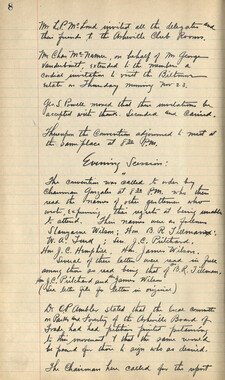 8
Mr L.P. McLoud invited all the delegates and
their friends to the Asheville Club Rooms.
Mr Chas McNamee, on behalf of Mr George
Vanderbilt, extended to the members a
cordial invitation to visit the Biltmore
Estate on Thursday morning Nov 23.
Geo S. Powell moved that these invitations be
accepted with thanks. Seconded and Carried.
Thereupon the Convention adjourned to meet at
the same place at 8 P.M.
Evening Session:
The convention was called to order by
Chairman at 8 P.M. who then
read the names of other gentlemen who
wrote, expressing their regrets at being unable
to attend. Their names were as follows
Wilson; Hon B. R. Tillman;
W. A. ; Sen. J. C. Pritchard,
Hon J. C. ; James Wilson;
Several of these letters were read in full
among them as read being that of B. R. Tillman,
Hon J. C. Pritchard and James Wilson
(See letter file for letters in original)
Dr C.P. Ambler stated that the local committee
on Parks and Forestry of the Asheville Board of
Trade, had had petitions printed pertaining
to this movement & that the same would
be passed for those to sign who so desired.
The Chairman here called for the report